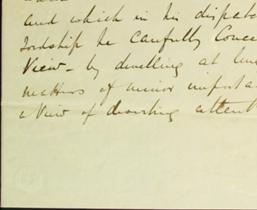 and which in his dispatc
Lordship he carefully Conce
View - by dwelling at len
matters of minor importa
a View of diverting attent